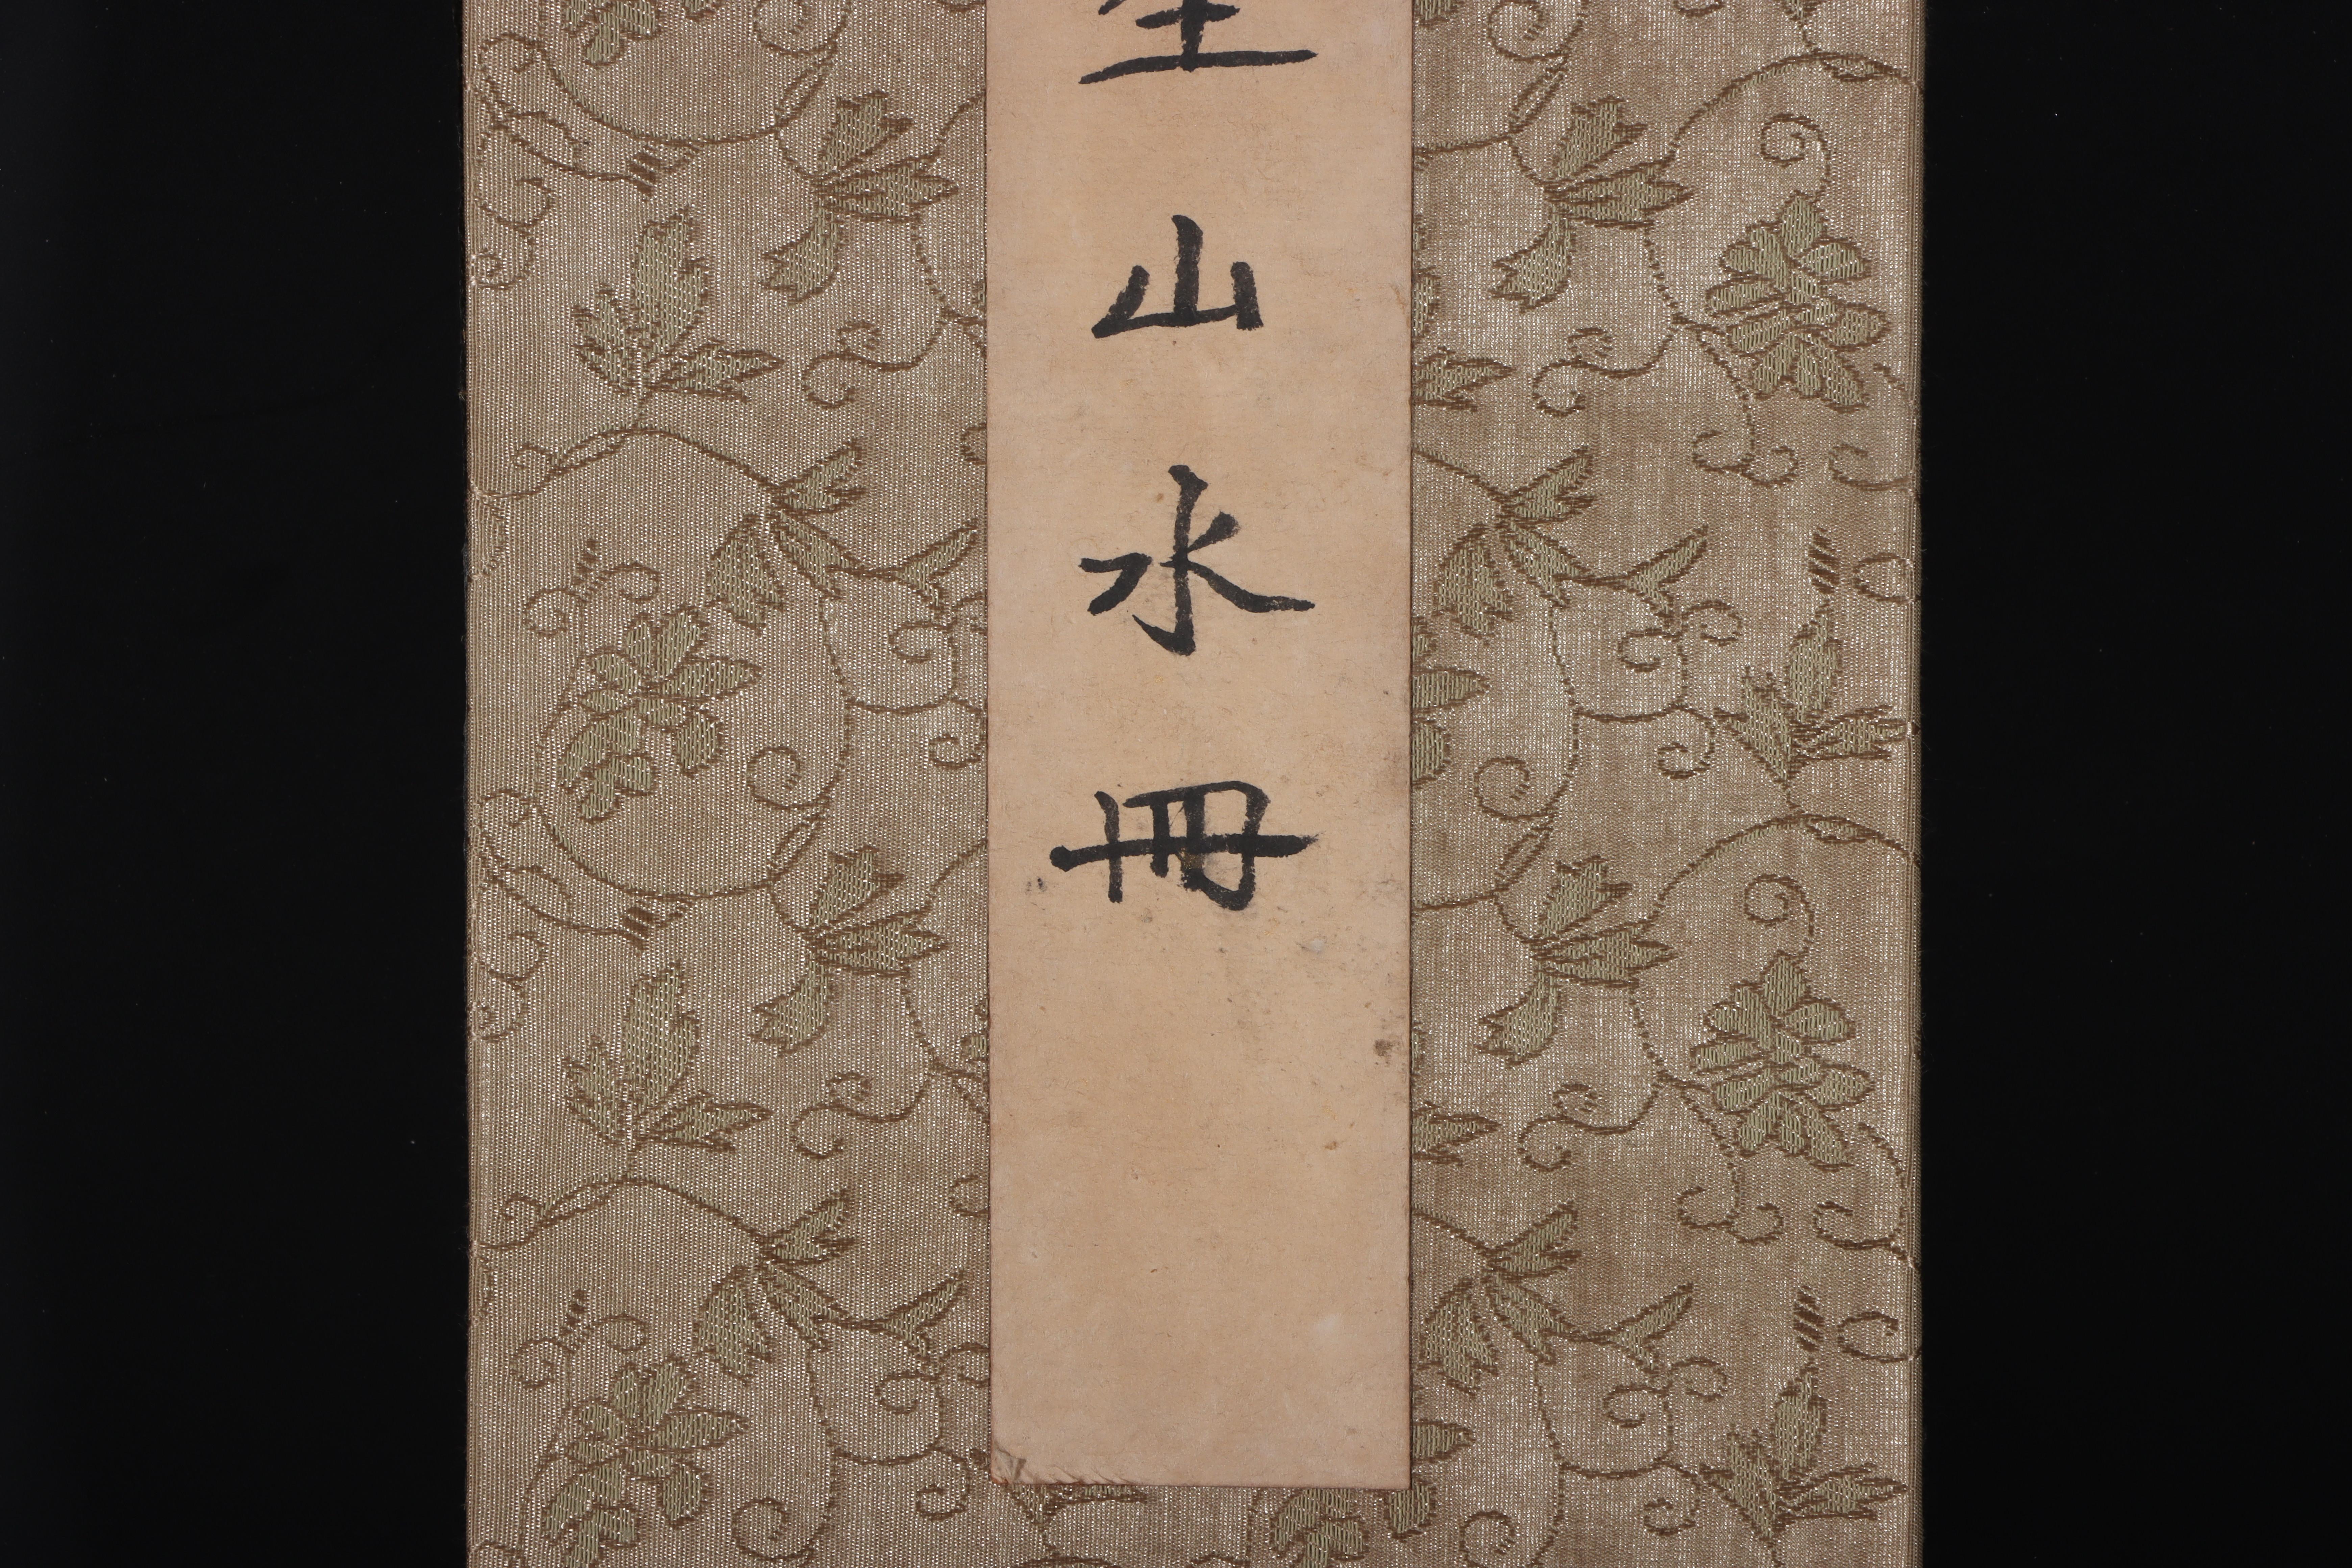 山水冊